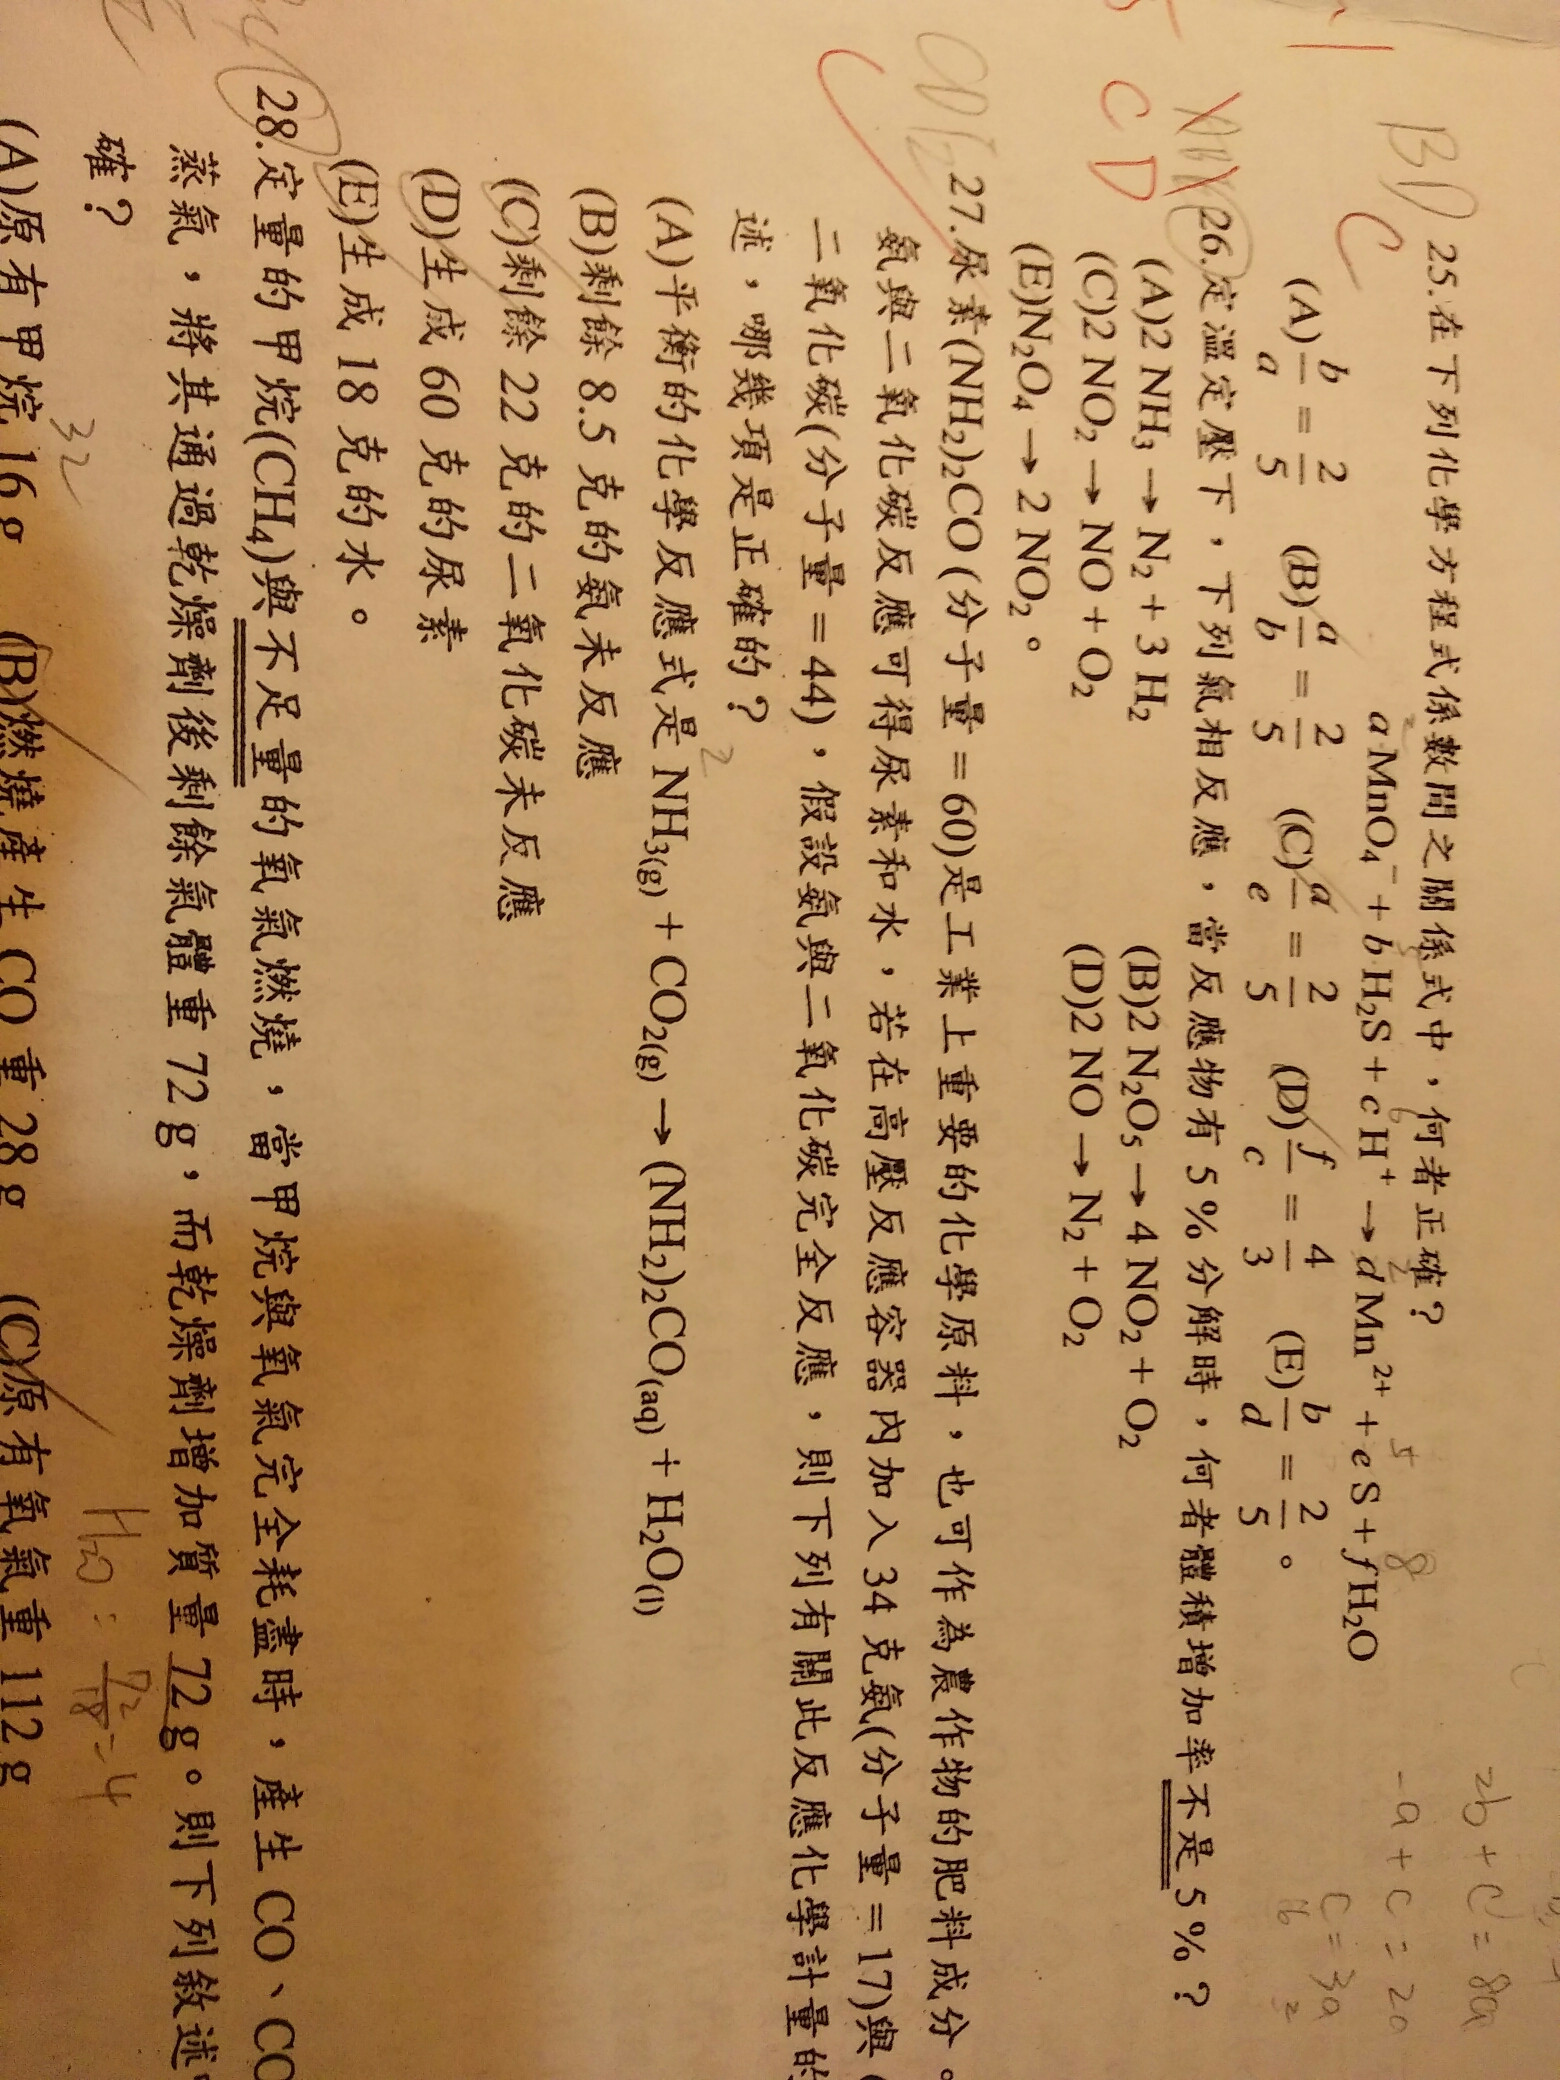 BD
C
25.在下列化學方程式係數間之關係式中，何者正確？
aMnO₄⁻ + bH₂S + cH⁺ → dMn²⁺ + eS + fH₂O
(A) b/a = 2/5 (B) a/b = 2/5 (C) a/e = 2/5 (D) f/c = 4/3 (E) b/d = 2/5 。
2b + c = 8a
-a + c = 2a
c = 3a
CD
26.定溫定壓下，下列氣相反應，當反應物有 5 % 分解時，何者體積增加率不是 5 %？
(A)2 NH₃ → N₂ + 3 H₂ (B)2 N₂O₅ → 4 NO₂ + O₂
(C)2 NO₂ → NO + O₂ (D)2 NO → N₂ + O₂
(E)N₂O₄ → 2 NO₂。
27.尿素(NH₂)₂CO (分子量 = 60)是工業上重要的化學原料，也可作為農作物的肥料成分。
氨與二氧化碳反應可得尿素和水，若在高壓反應容器內加入 34 克氨(分子量 = 17)與
二氧化碳(分子量 = 44)，假設氨與二氧化碳完全反應，則下列有關此反應化學計量的
述，哪幾項是正確的？
(A)平衡的化學反應式是 NH₃(g) + CO₂(g) → (NH₂)₂CO(aq) + H₂O(l)
2
(B)剩餘 8.5 克的氨未反應
(C)剩餘 22 克的二氧化碳未反應
(D)生成 60 克的尿素
(E)生成 18 克的水。
28.定量的甲烷(CH₄)與不足量的氧氣燃燒，當甲烷與氧氣完全耗盡時，產生 CO、CO
蒸氣，將其通過乾燥劑後剩餘氣體重 72 g，而乾燥劑增加質量 72 g。則下列敘述
確？
H₂O : 72/18 = 4
32
(A)原有甲烷 16 g (B)燃燒產生 CO 重 28 g (C)原有氧氣重 112 g